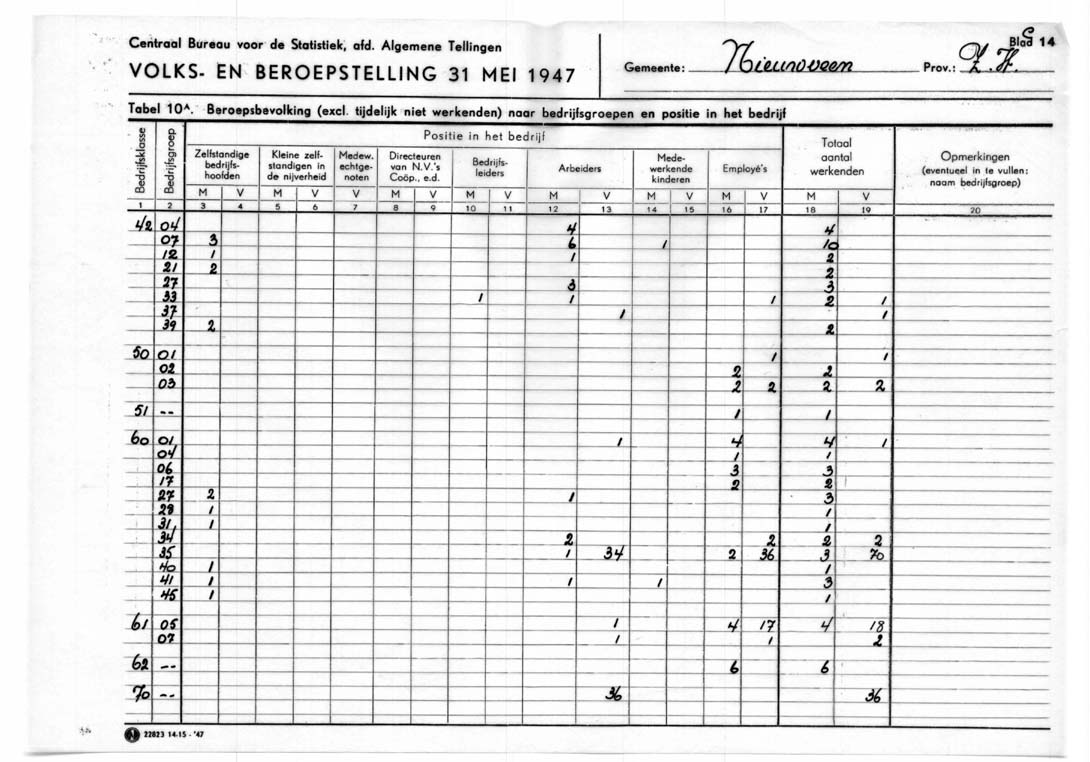 Centraal Bureau voor de Statistiek, afd. Algemene Tellingen
VOLKS- EN BEROEPSTELLING 31 MEI 1947
Gemeente: Nieuwveen Prov.: Z.H. Blad 14
Tabel 10A. Beroepsbevolking (excl. tijdelijk niet werkenden) naar bedrijfsgroepen en positie in het bedrijf
Bedrijfsklasse Bedrijfsgroep Positie in het bedrijf Totaal aantal werkenden Opmerkingen (eventueel in te vullen: naam bedrijfsgroep)
Zelfstandige bedrijfs- hoofden Kleine zelf- standigen in de nijverheid Medew. echtge- noten Directeuren van N.V.'s Coöp., e.d. Bedrijfs- leiders Arbeiders Mede- werkende kinderen Employé's
M V M V V M V M V M V M V M V M V
1 2 3 4 5 6 7 8 9 10 11 12 13 14 15 16 17 18 19 20
42 04 4 4
07 3 6 1 10
12 1 1 2
21 2 2
27 3 3
33 1 1 1 2 1
37 1 1
39 2 2
50 01 1 1
02 2 2
03 2 2 2 2
51 -- 1 1
60 01 1 4 4 1
04 1 1
06 3 3
17 2 2
27 2 1 3
28 1 1
31 1 1
34 2 2 2 2
35 1 34 2 36 3 70
40 1 1
41 1 1 1 3
45 1 1
61 05 1 4 17 4 18
07 1 1 2
62 -- 6 6
70 -- 36 36
22823 14-15 - '47